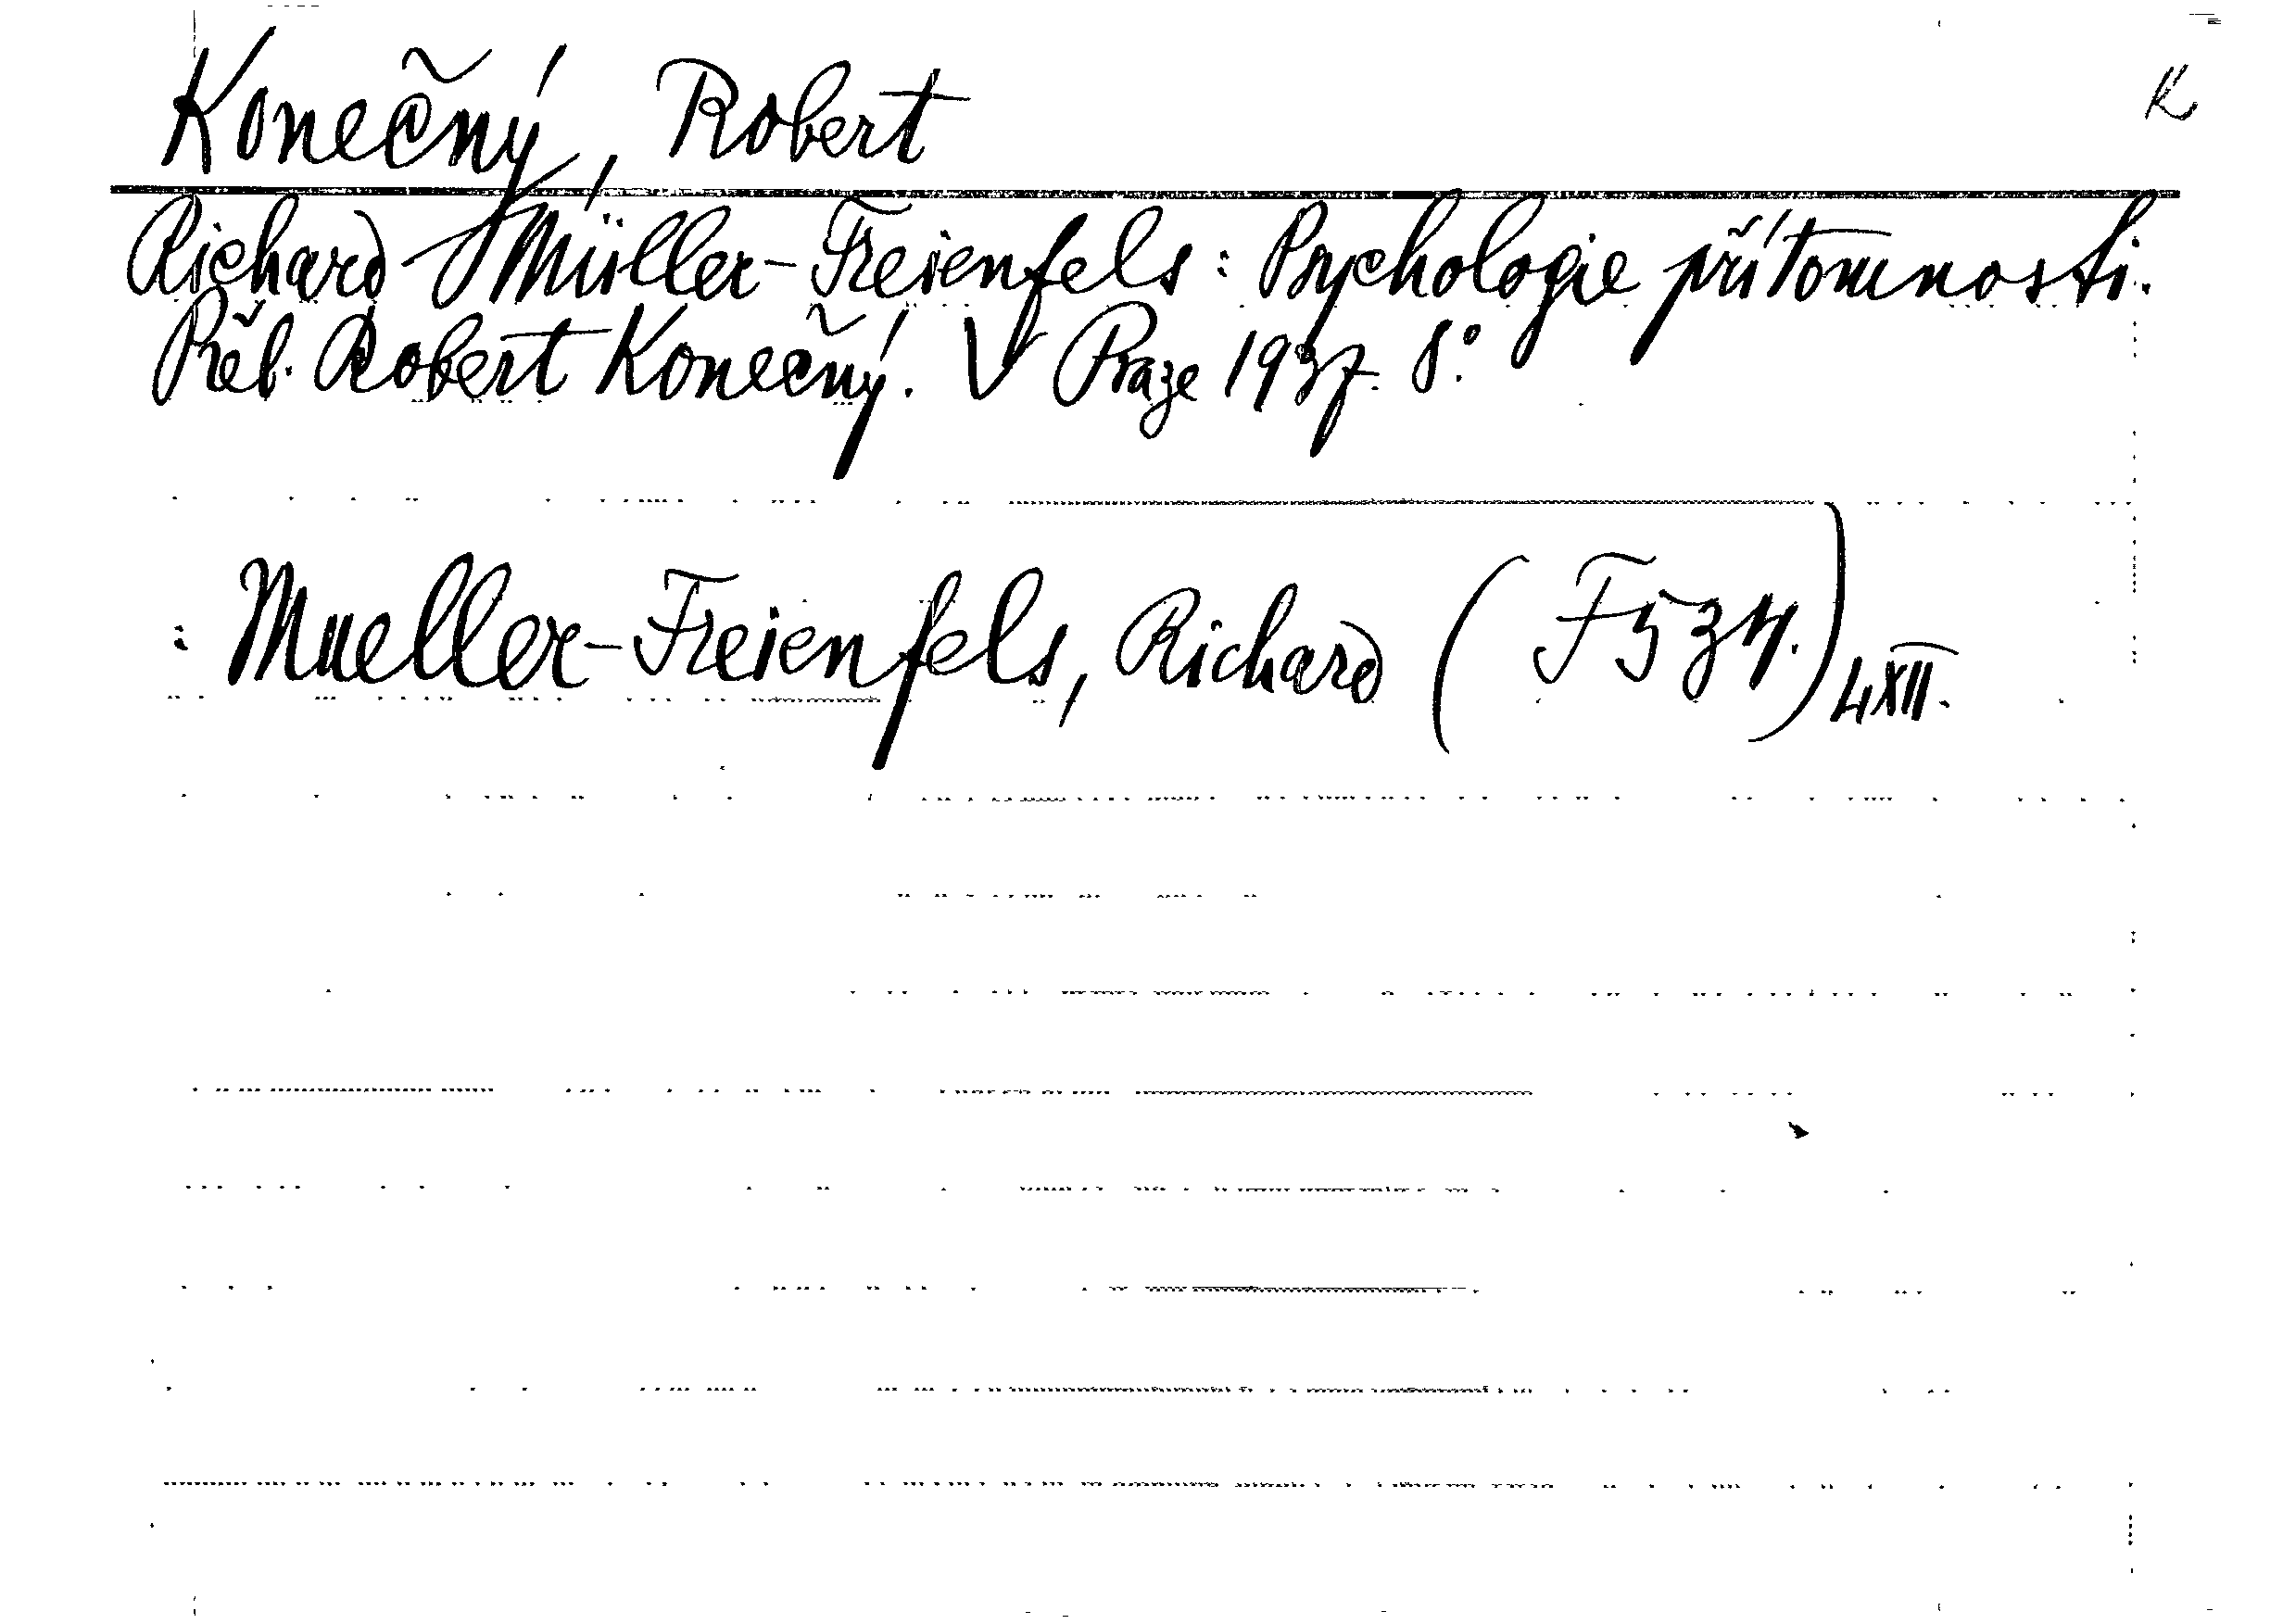 Konečný, Robert
K
Richard Müller-Freienfels: Psychologie přítomnosti.
Přel. Robert Konečný. V Praze 1937. 8°.
: Mueller-Freienfels, Richard (F534.) LXII.